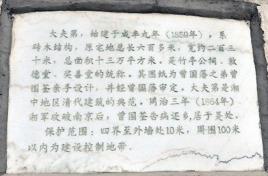 大夫第,始建于咸丰九年(1859年)。系
砖木结构,原宅地总长六百多米,宽约二百三
十米,总面积十三万平方米。是竹亭公祠、敦
德堂、奖善堂的统称。其图纸为曾国藩之弟曾
国荃亲手设计,并经曾国藩审定。大夫第是湘
中地区清代建筑的典范。同治三年(1864年)
湘军攻破南京后,曾国荃告病还乡居于是处。
保护范围:四界至外墙处10米,周围100米
以内为建设控制地带。